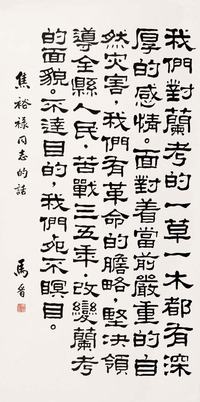 我們對蘭考的一草一木都有深
厚的感情。面對着當前嚴重的自
然灾害，我們有革命的膽略，堅决領
導全縣人民，苦戰三五年，改變蘭考
的面貌。不達目的，我們死不瞑目。
焦裕禄同志的話
馬晋